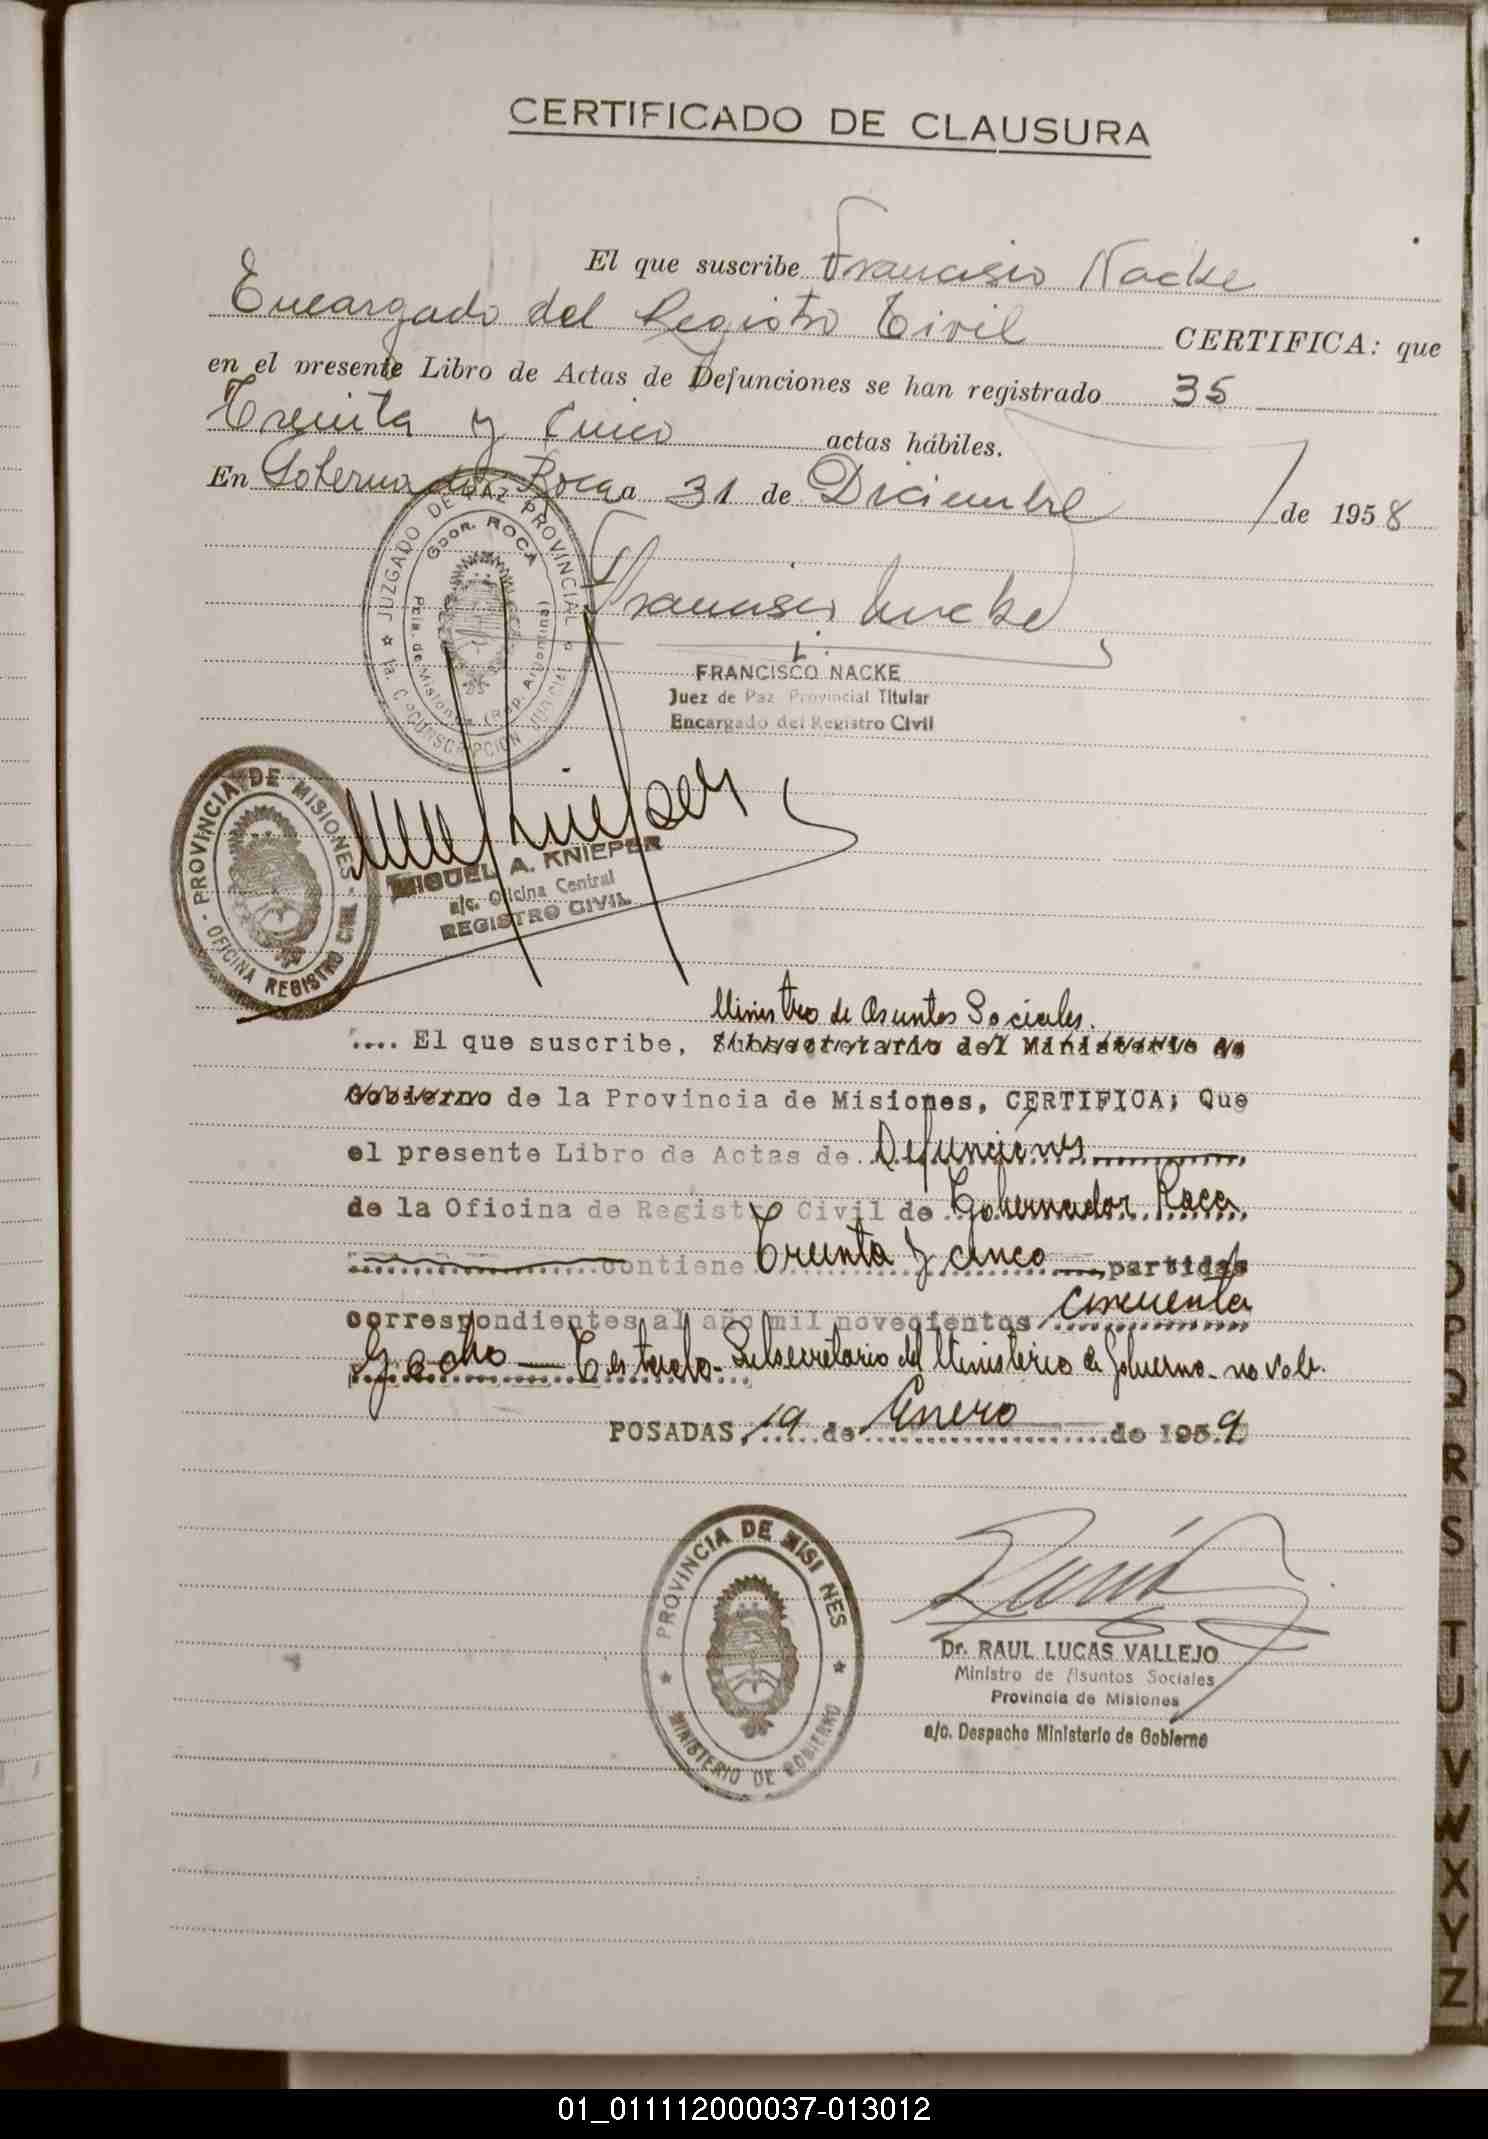 CERTIFICADO DE CLAUSURA
El que suscribe Francisco Nacke
Encargado del Registro Civil CERTIFICA: que
en el presente Libro de Actas de Defunciones se han registrado 35
Treinta y Cinco actas hábiles.
En Gobernador Roca a 31 de Diciembre de 1958
JUZGADO DE PAZ PROVINCIAL
Gdor. ROCA
Pcia. de Misiones (Rep. Argentina)
1a. CIRCUNSCRIPCION JUDICIAL
Francisco Nacke
FRANCISCO NACKE
Juez de Paz Provincial Titular
Encargado del Registro Civil
PROVINCIA DE MISIONES
OFICINA REGISTRO CIVIL
MIGUEL A. KNIEPER
a/c. Oficina Central
REGISTRO CIVIL
Ministro de Asuntos Sociales.
.... El que suscribe, Subsecretario del Ministerio de
Gobierno de la Provincia de Misiones, CERTIFICA; Que
el presente Libro de Actas de Defunciones
de la Oficina de Registro Civil de Gobernador Roca
contiene Treinta y cinco partidas
correspondientes al año mil novecientos cincuenta
y ocho — Testado - Subsecretario del Ministerio de Gobierno - no vale.
POSADAS, 19 de Enero de 1959
PROVINCIA DE MISIONES
MINISTERIO DE GOBIERNO
Dr. RAUL LUCAS VALLEJO
Ministro de Asuntos Sociales
Provincia de Misiones
a/c. Despacho Ministerio de Gobierno
O
P
Q
R
S
T
U
V
W
X
Y
Z
01_011112000037-013012